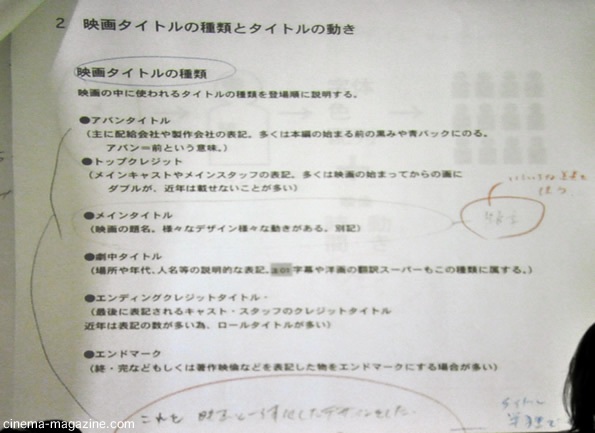 2 映画タイトルの種類とタイトルの動き
映画タイトルの種類
映画の中に使われるタイトルの種類を登場順に説明する。
●アバンタイトル
(主に配給会社や製作会社の表記。多くは本編の始まる前の黒みや青バックにのる。
アバン=前という意味。)
●トップクレジット
(メインキャストやメインスタッフの表記。多くは映画の始まってからの画に
ダブルが、近年は載せないことが多い)
●メインタイトル
(映画の題名。様々なデザイン様々な動きがある。別記)
●劇中タイトル
(場所や年代、人名等の説明的な表記。字幕や洋画の翻訳スーパーもこの種類に属する。)
●エンディングクレジットタイトル・
(最後に表記されるキャスト・スタッフのクレジットタイトル
近年は表記の数が多い為、ロールタイトルが多い)
●エンドマーク
(終・完などもしくは著作映倫などを表記した物をエンドマークにする場合が多い)
これも
タイトル
cinema-magazine.com